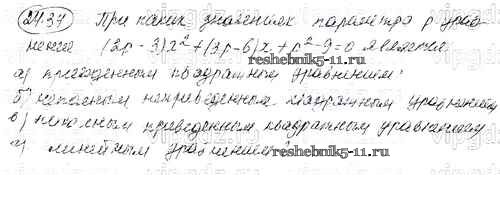 24.37 При каких значениях параметра p урав-
нение (2p - 3)x² + (3p - 6)x + p² - 9 = 0 является
а) приведенным квадратным уравнением;
б) неполным неприведенным квадратным уравнением
в) неполным приведенным квадратным уравнением
г) линейным уравнением?
reshebnik5-11.ru
reshebnik5-11.ru